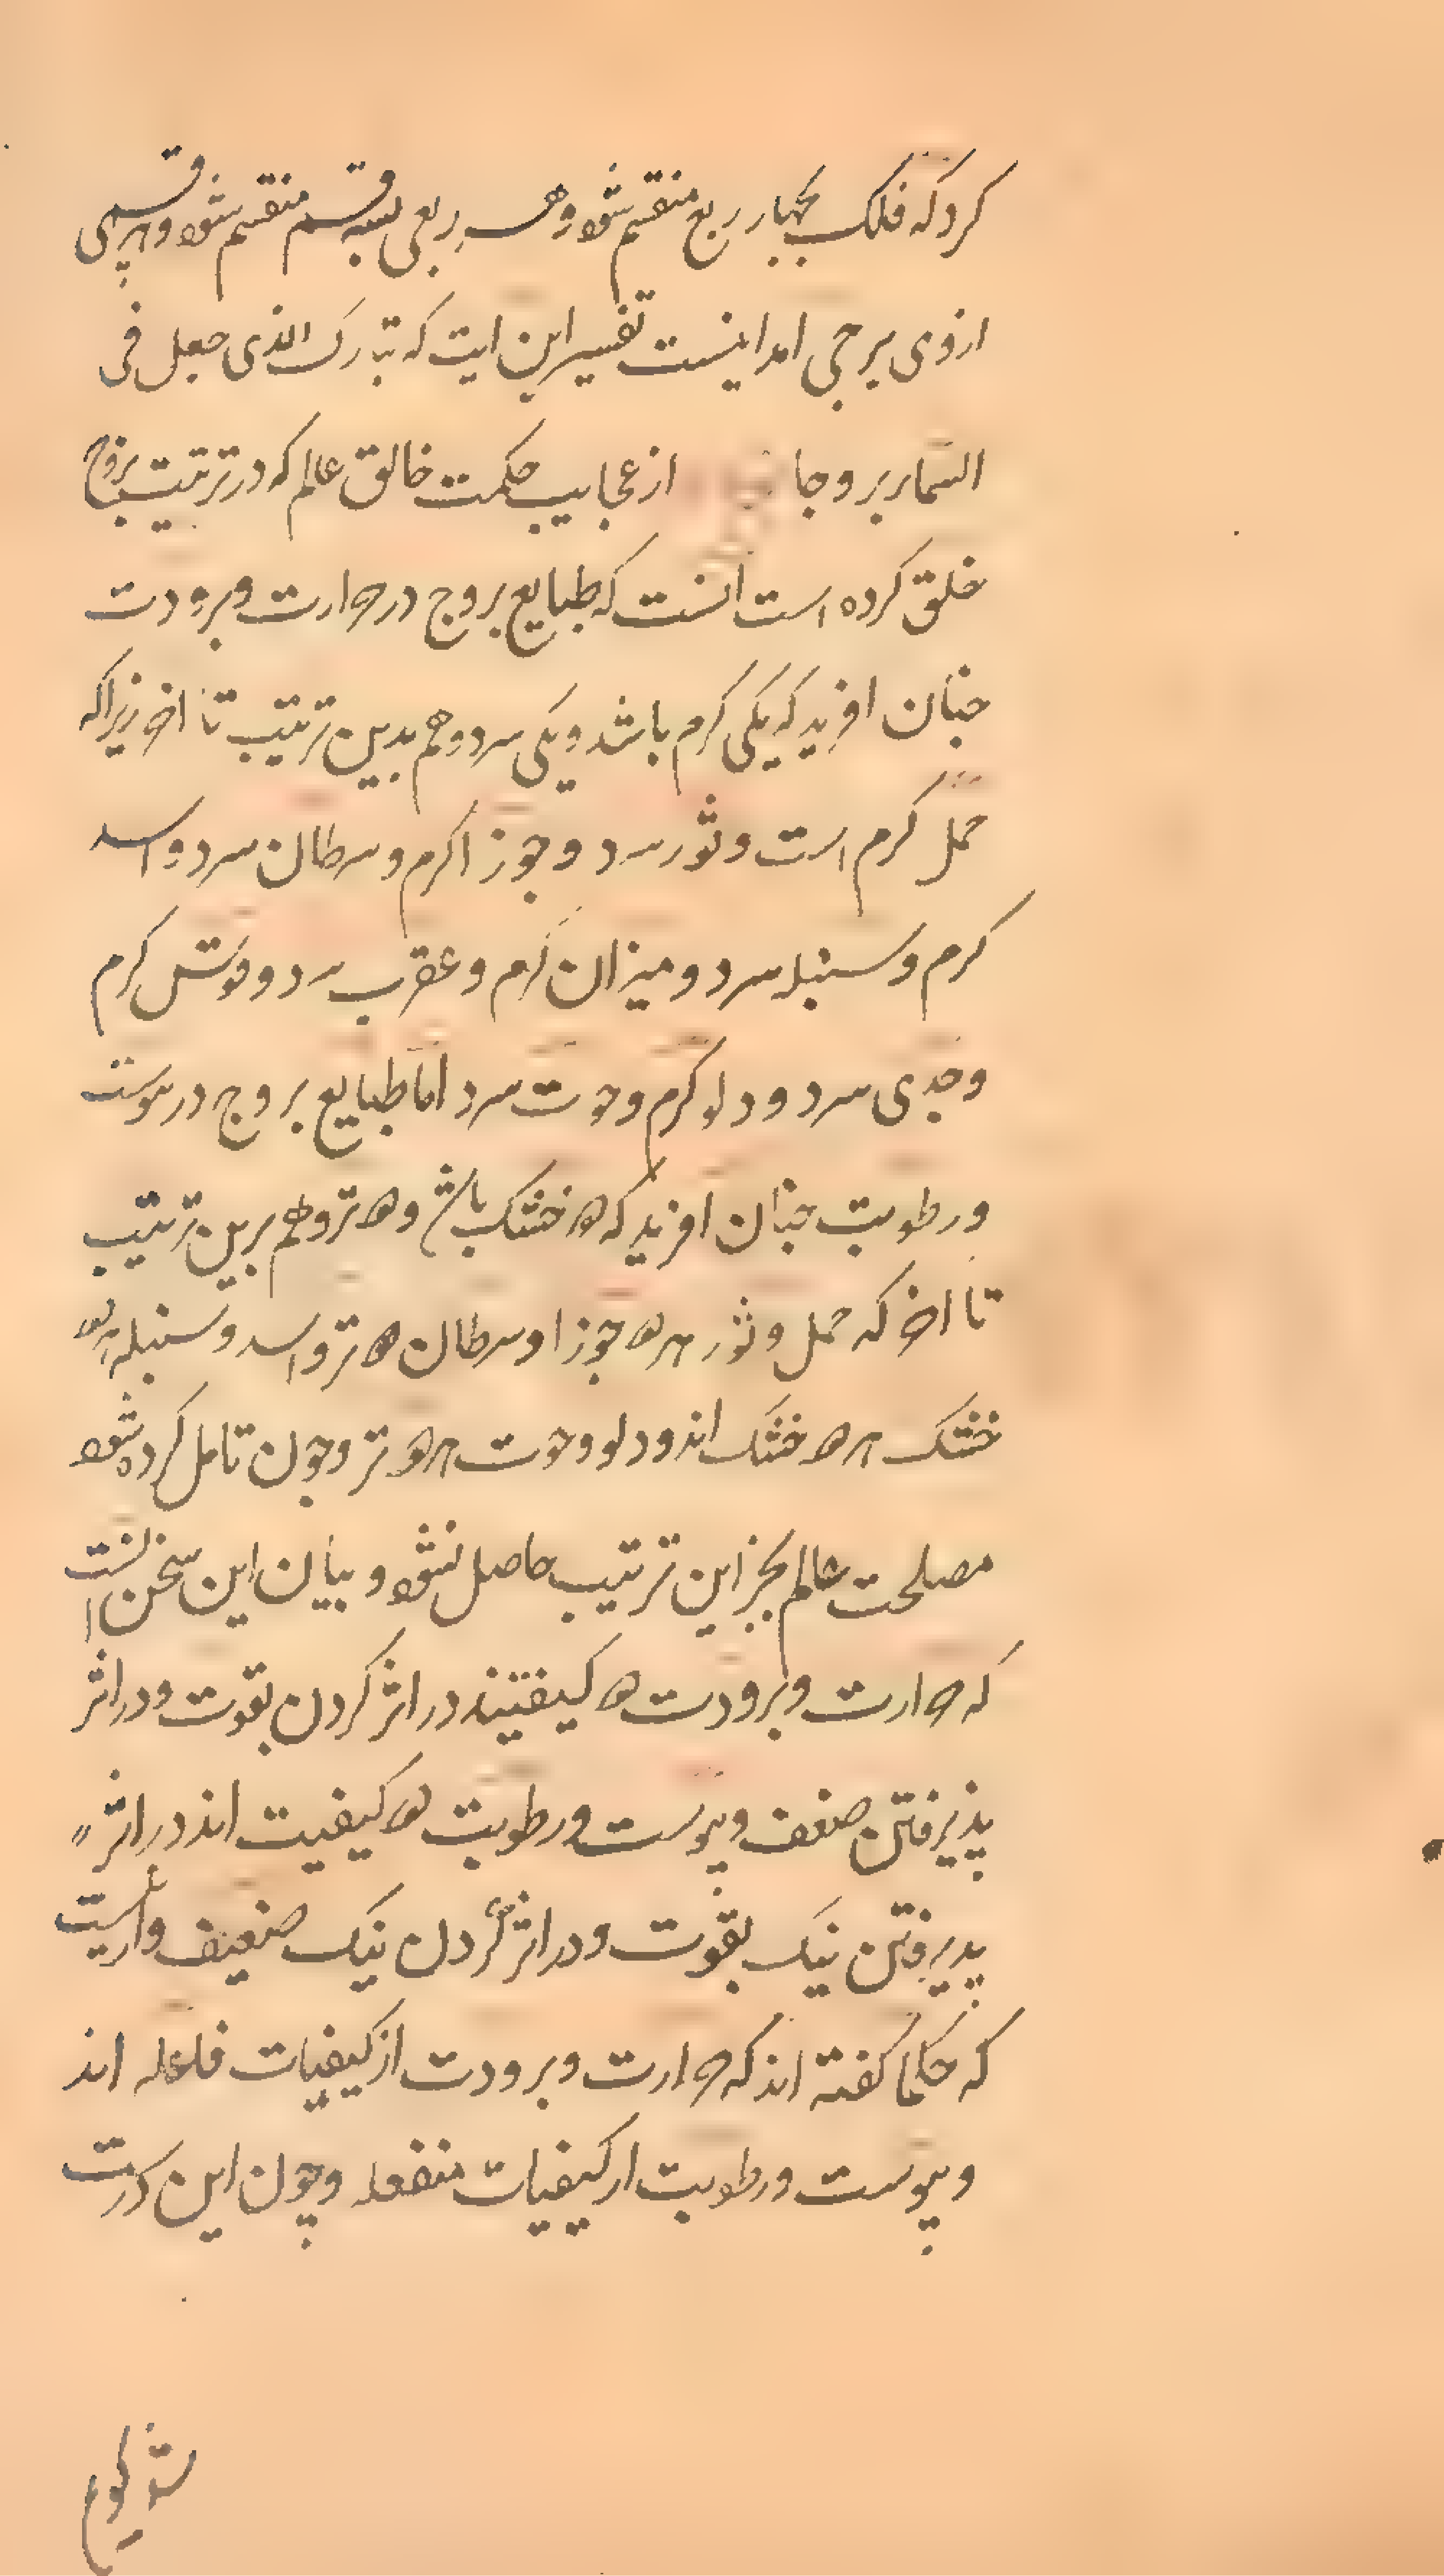 کرد که فلک بچهار ربع منقسم شود و هر ربعی بسه قسم منقسم شود و هر قسمی
ازوی برجی امد اینست تفسیر این ایت که تبارک الذی جعل فی
السماء بروجا از عجایب حکمت خالق عالم که در ترتیب بروج
خلق کرده است انست که طبایع بروج در حرارت و برودت
جنان افرید که یکی کرم باشد و یکی سرد و هم بدین ترتیب تا اخر زیرا که
حمل کرم است و ثور سرد و جوزا کرم و سرطان سرد و اسد
کرم و سنبله سرد و میزان کرم و عقرب سرد و قوس کرم
و جدی سرد و دلو کرم و حوت سرد اما طبایع بروج در یبوست
و رطوبت جنان افرید که دو خشک باشد و دو تر و هم برین ترتیب
تا اخر که حمل و ثور هر دو جوزا و سرطان دو تر و اسد و سنبله هر دو
خشک هر دو خشک اند و دلو و حوت هر دو تر و چون تامل کرده شود
مصلحت عالم بجز این ترتیب حاصل نشود و بیان این سخن انست
که حرارت و برودت دو کیفیتند در اثر کردن بقوت و در اثر
پذیرفتن ضعف و یبوست و رطوبت دو کیفیت اند در اثر
پدیرفتن نیک بقوت و در اثر کردن نیک ضعیف و
که حکما کفته اند که حرارت و برودت از کیفیات فاعله اند
و یبوست و رطوبت از کیفیات منفعله و چون این درست
شد کویم